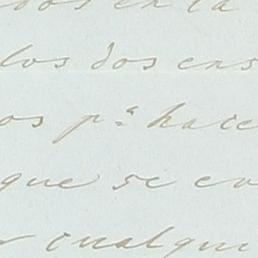 los dos ens
os pª hace
que se co
cualqui